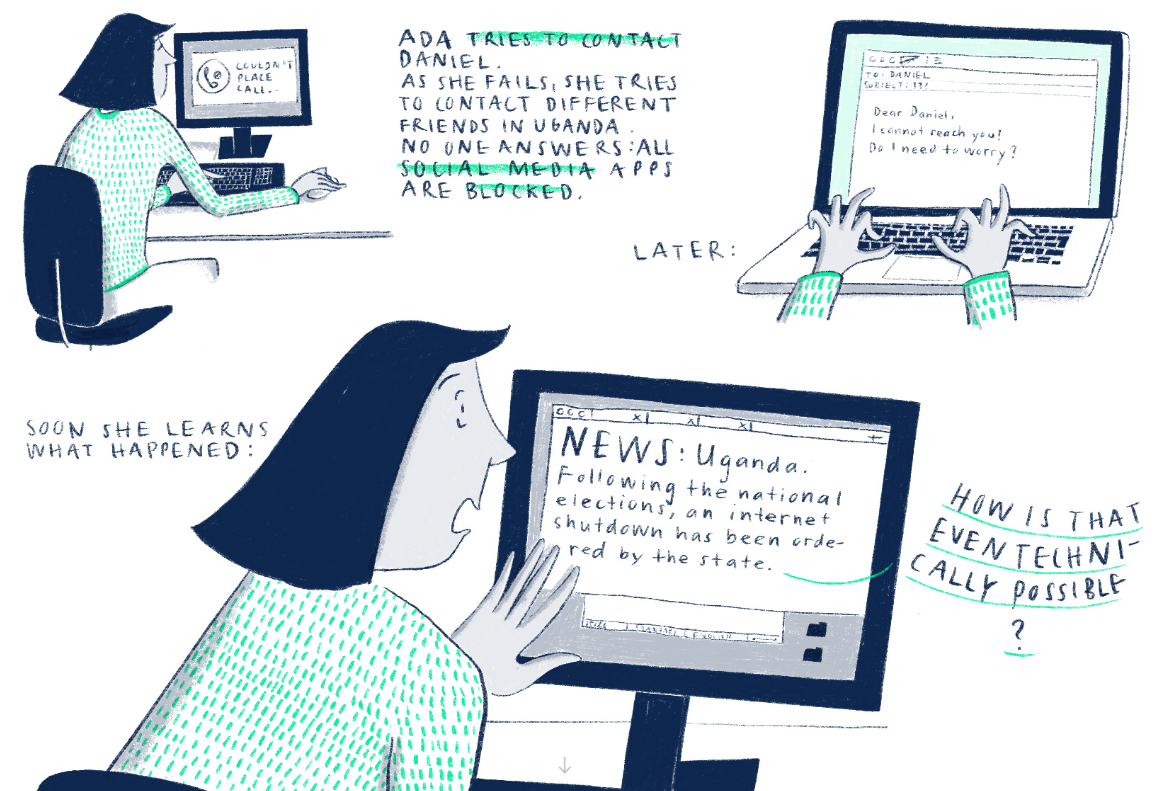 COULDN'T
PLACE
CALL...
ADA TRIES TO CONTACT
DANIEL.
AS SHE FAILS, SHE TRIES
TO CONTACT DIFFERENT
FRIENDS IN UGANDA.
NO ONE ANSWERS: ALL
SOCIAL MEDIA APPS
ARE BLOCKED.
TO: DANIEL
SUBJECT: ??!
Dear Daniel,
I cannot reach you!
Do I need to worry?
LATER:
SOON SHE LEARNS
WHAT HAPPENED:
NEWS: Uganda.
Following the national
elections, an internet
shutdown has been orde-
red by the state.
HOW IS THAT
EVEN TECHNI-
CALLY POSSIBLE
?